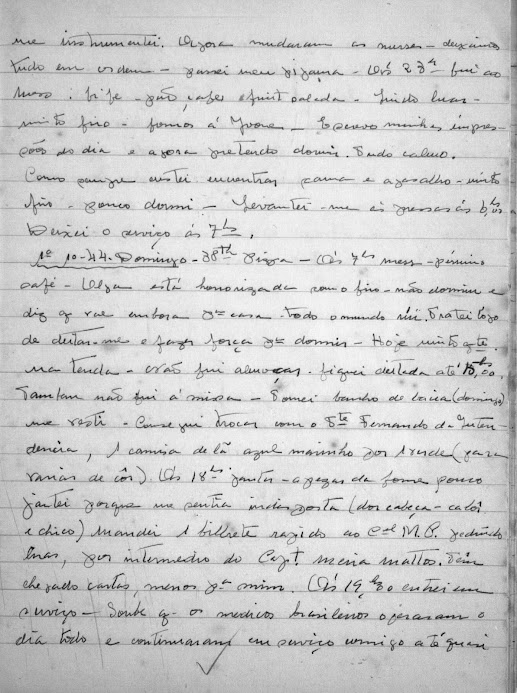 me instrumentei. Agora mudaram as nurses - deixamos
tudo em ordem - passei meu pijama - Às 23hs fui ao
mess: bife - pão, café e fruit salada - Lindo luar -
muito frio - fomos á Ivone - Escrevo minhas impres-
sões do dia e agora pretendo dormir. Tudo calmo.
Como sempre custei encontrar cama e agasalho - muito
frio - pouco dormi - Levantei-me às pressas ás 6,
Deixei o serviço ás 7hs.
1º-10-44. Domingo - 38th Pizza - Às 7hs mess - péssimo
café - está horrorizada com o frio - não dormiu e
diz q vae embora pª casa - todo o mundo ri. Tratei logo
de deitar-me e fazer força pª dormir - Hoje muito qte
na tenda - não fui almoçar - fiquei deitada até
Tambem não fui á missa - Tomei banho de bacia (domingo)
me vesti - Consegui trocar com o Tte Fernando da Inten
dencia, 1 camisa de lã azul marinho por 1 verde (para
variar de côr). Às 18hs jantar - apezar da fome pouco
jantei porque me sentia indisposta (dor cabeça - calor
e chico) Mandei 1 bilhete rapido ao Cel M.P. pedindo
por intermedio do Capt. Meira Mattos. Têm
chegado cartas, menos pª mim. Às 19 entrei em
serviço - Soube q os medicos brasileiros operaram o
dia todo e continuaram em serviço comigo até quasi